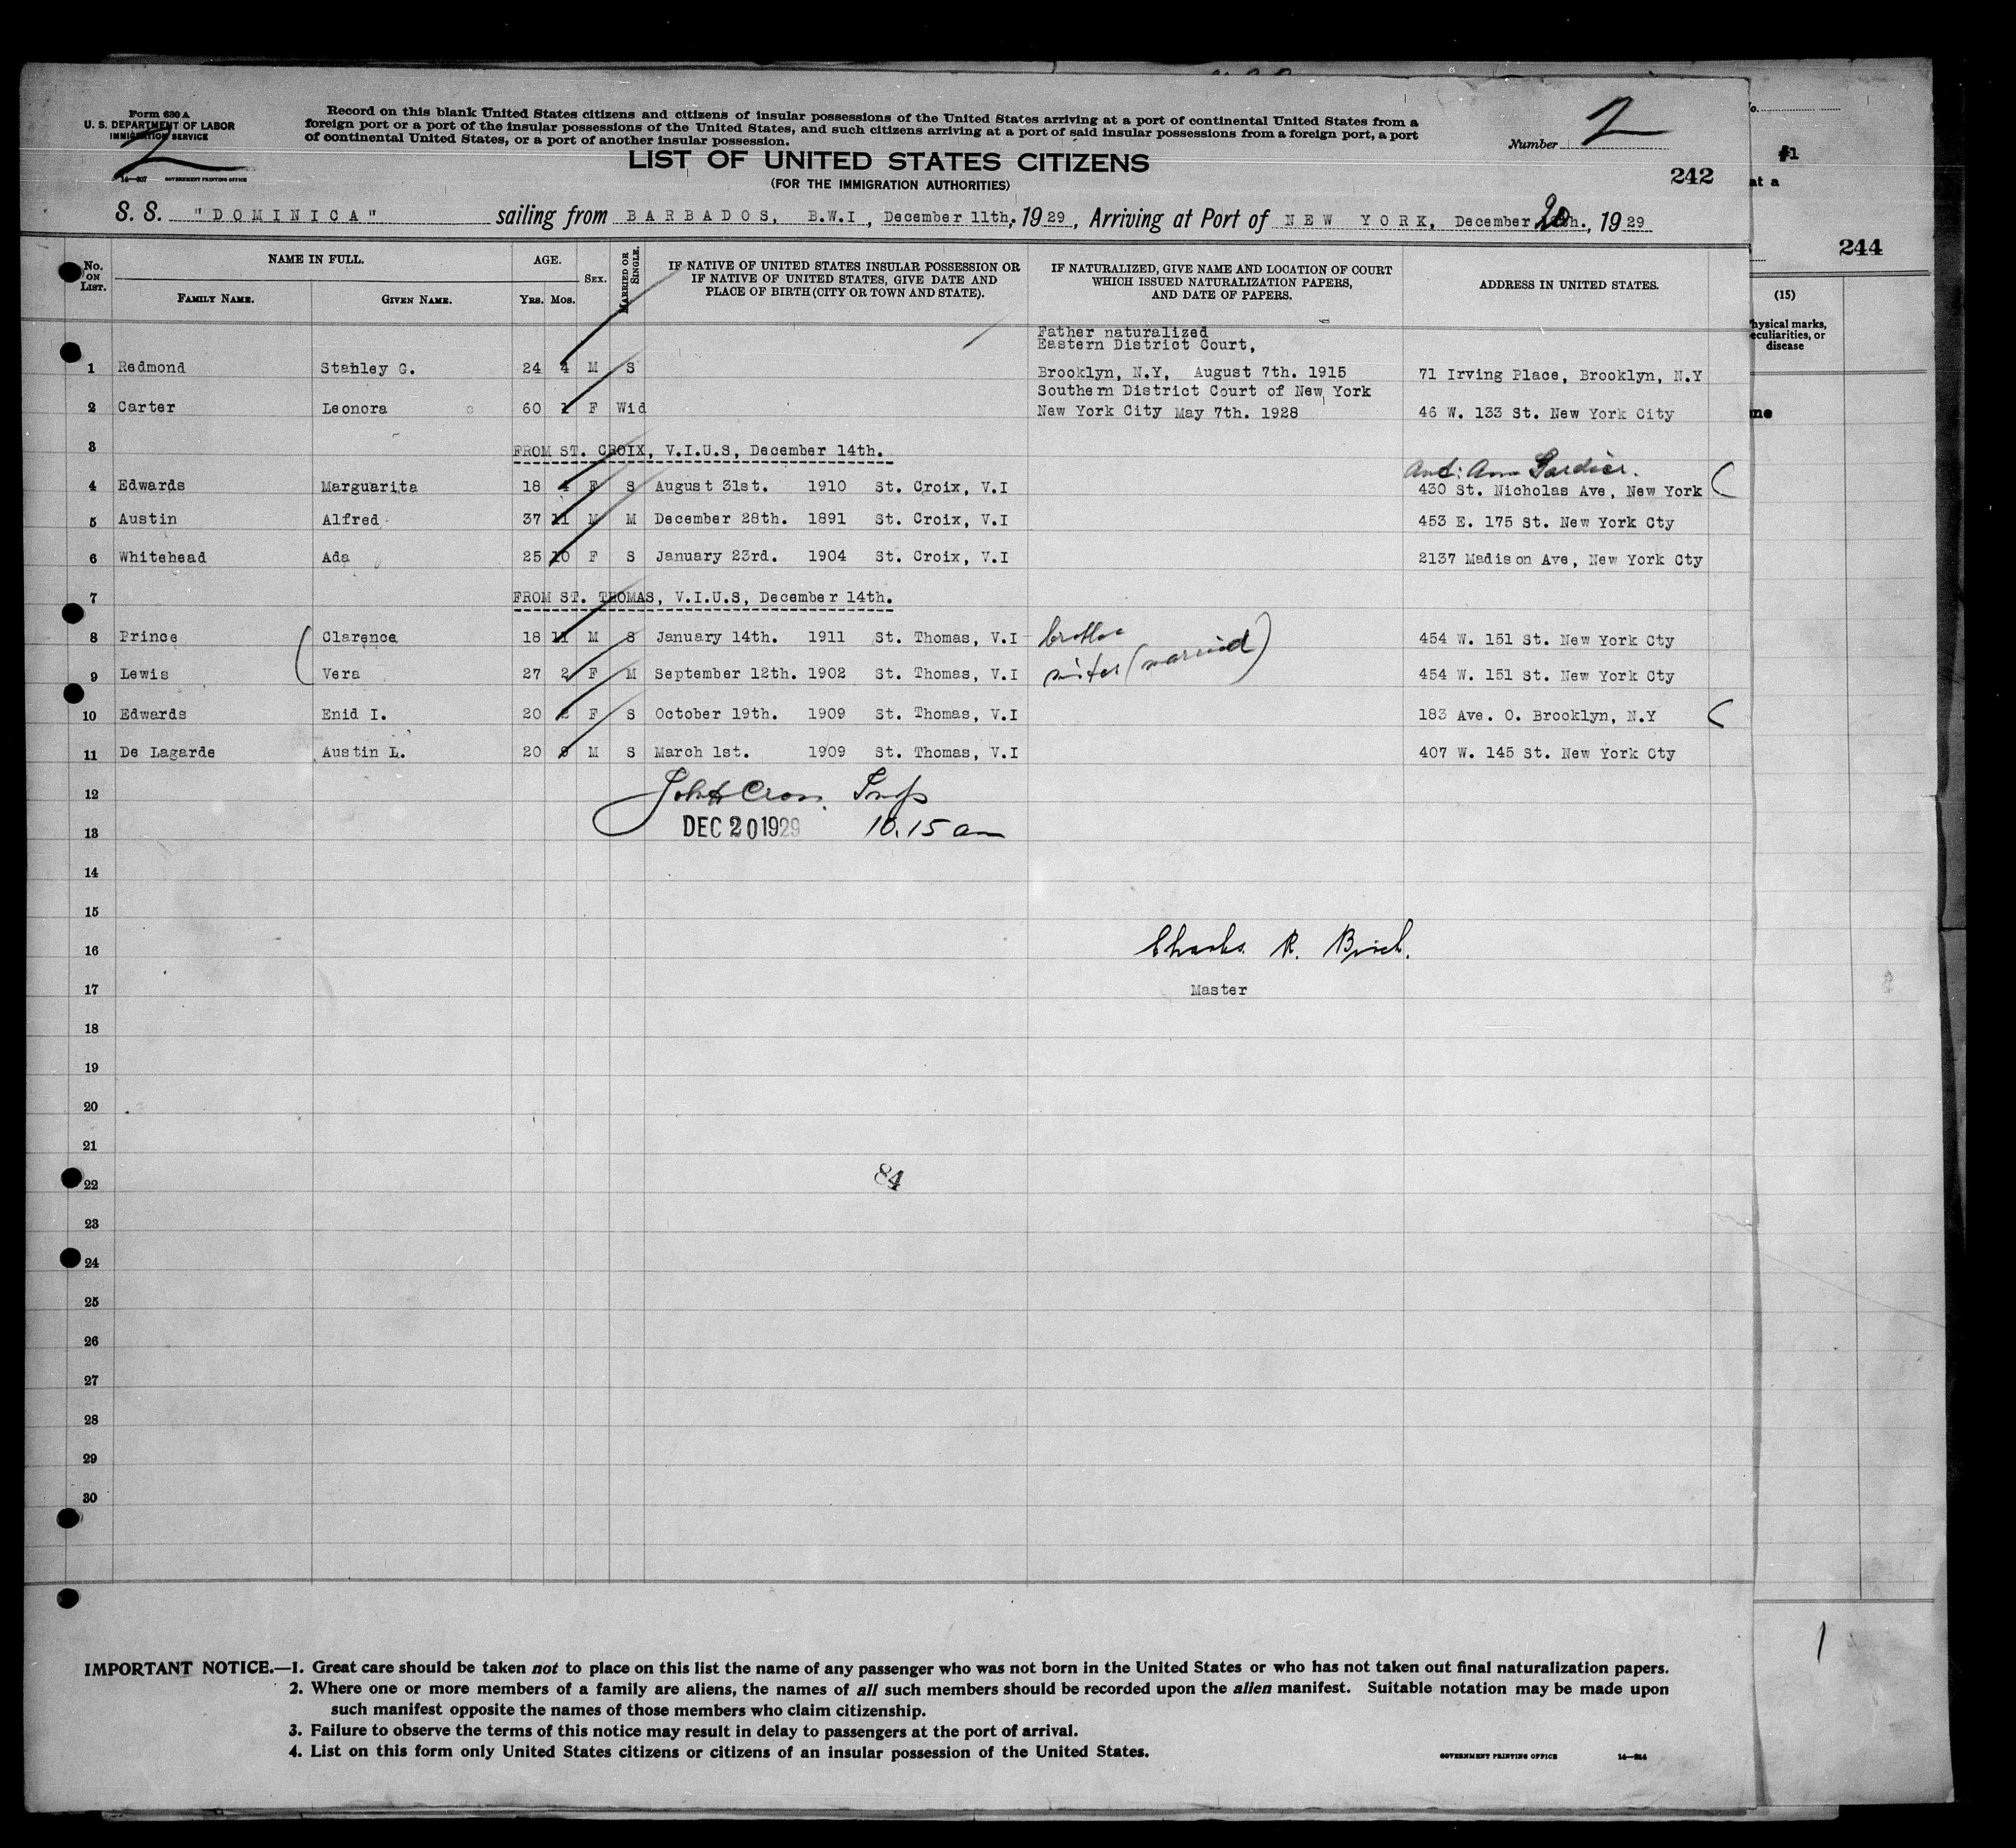 Form 630 A
U. S. DEPARTMENT OF LABOR
IMMIGRATION SERVICE
2
14—607 GOVERNMENT PRINTING OFFICE
Record on this blank United States citizens and citizens of insular possessions of the United States arriving at a port of continental United States from a
foreign port or a port of the insular possessions of the United States, and such citizens arriving at a port of said insular possessions from a foreign port, a port
of continental United States, or a port of another insular possession.
Number 2
LIST OF UNITED STATES CITIZENS
(FOR THE IMMIGRATION AUTHORITIES)
242
S. S. "DOMINICA" sailing from BARBADOS, B.W.I, December 11th, 1929, Arriving at Port of NEW YORK, December 20th., 1929
No. ON LIST.
NAME IN FULL.
FAMILY NAME.
GIVEN NAME.
AGE.
YRS. MOS.
SEX.
MARRIED OR SINGLE.
IF NATIVE OF UNITED STATES INSULAR POSSESSION OR
IF NATIVE OF UNITED STATES, GIVE DATE AND
PLACE OF BIRTH (CITY OR TOWN AND STATE).
IF NATURALIZED, GIVE NAME AND LOCATION OF COURT
WHICH ISSUED NATURALIZATION PAPERS,
AND DATE OF PAPERS.
ADDRESS IN UNITED STATES.
Father naturalized
Eastern District Court,
1 Redmond Stanley G. 24 4 M S Brooklyn, N.Y, August 7th. 1915 71 Irving Place, Brooklyn, N.Y
Southern District Court of New York
2 Carter Leonora 60 1 F Wid New York City May 7th. 1928 46 W. 133 St. New York City
3 FROM ST. CROIX, V.I.U.S, December 14th.
Aunt: Ann
4 Edwards Marguarita 18 4 F S August 31st. 1910 St. Croix, V.I 430 St. Nicholas Ave, New York
5 Austin Alfred 37 11 M M December 28th. 1891 St. Croix, V.I 453 E. 175 St. New York Cty
6 Whitehead Ada 25 10 F S January 23rd. 1904 St. Croix, V.I 2137 Madison Ave, New York Cty
7 FROM ST. THOMAS, V.I.U.S, December 14th.
8 Prince Clarence 18 11 M S January 14th. 1911 St. Thomas, V.I brother 454 W. 151 St. New York Cty
9 Lewis Vera 27 2 F M September 12th. 1902 St. Thomas, V.I sister (married) 454 W. 151 St. New York Cty
10 Edwards Enid I. 20 2 F S October 19th. 1909 St. Thomas, V.I 183 Ave. O. Brooklyn, N.Y
11 De Lagarde Austin L. 20 9 M S March 1st. 1909 St. Thomas, V.I 407 W. 145 St. New York Cty
12 Insp
13 DEC 20 1929 10.15 am
14
15
16 Charles R. Birch.
17 Master
18
19
20
21
22 84
23
24
25
26
27
28
29
30
IMPORTANT NOTICE.—1. Great care should be taken not to place on this list the name of any passenger who was not born in the United States or who has not taken out final naturalization papers.
2. Where one or more members of a family are aliens, the names of all such members should be recorded upon the alien manifest. Suitable notation may be made upon
such manifest opposite the names of those members who claim citizenship.
3. Failure to observe the terms of this notice may result in delay to passengers at the port of arrival.
4. List on this form only United States citizens or citizens of an insular possession of the United States.
GOVERNMENT PRINTING OFFICE
#1
at a
244
(15)
hysical marks,
eculiarities, or
disease
1